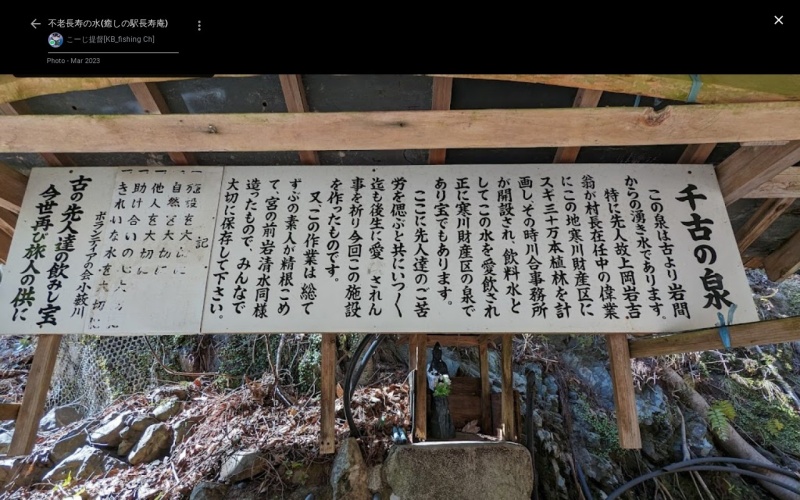 不老長寿の水(癒しの駅長寿庵)
こーじ提督[KB_fishing Ch]
Photo - Mar 2023
千古の泉
この泉は古より岩間
からの湧き水であります。
特に先人故上岡岩吉
翁が村長在任中の偉業
にこの地寒川財産区に
スギ三十万本植林を計
画しその時川合事務所
が開設され、飲料水と
してこの水を愛飲され
正に寒川財産区の泉で
あり宝でもあります。
ここに先人達のご苦
労を偲ぶと共にいつく
迄も後生に愛 されん
事を祈り今回この施設
を作ったものです。
又、この作業は総て
ずぶの素人が精根こめ
て、宮の前岩清水同様
造ったもので、みんなで
大切に保存して下さい。
記
自然を大切に
他人を大切に
助け合いの心
きれいな水を大切
ボランティアの会小籔川
古の先人達の飲みし宝
今世再び旅人の供に